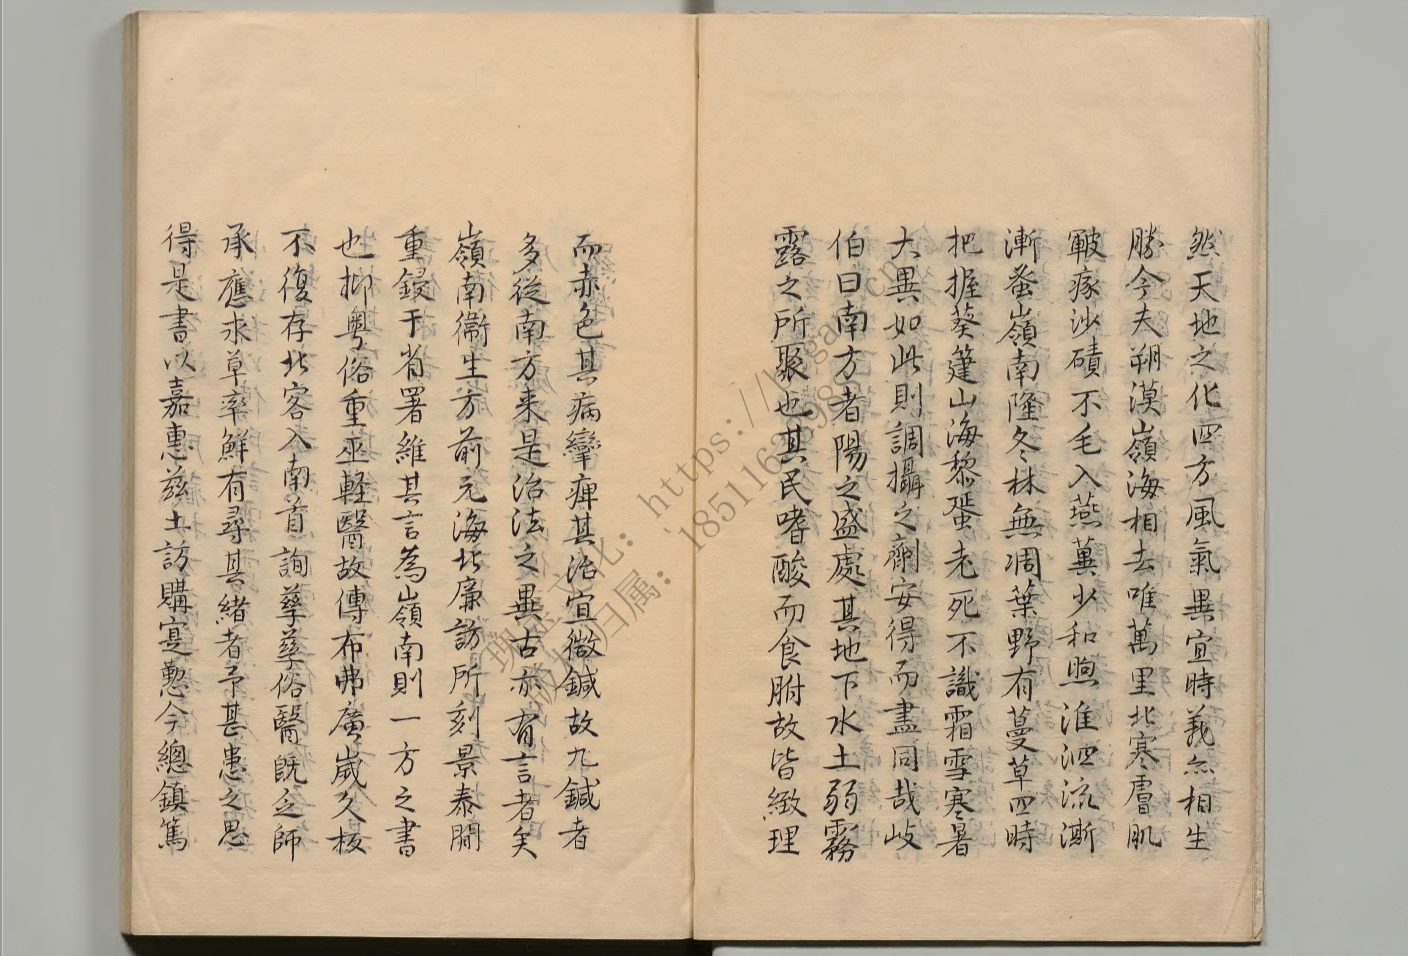 然天地之化四方風氣異宜時義無相生
勝今夫朔漠嶺海相去唯萬里北寒膚肌
皸瘃沙磧不毛入燕冀少和煦淮泗流澌
漸蚤嶺南隆冬林無凋葉野有蔓草四時
把握葵箑山海黎蜑老死不識霜雪寒暑
大異如此則調攝之劑安得而盡同哉岐
伯曰南方者陽之盛處其地下水土弱霧
露之所聚也其民嗜酸而食胕故皆緻理
而赤色其病攣痺其治宜微鍼故九鍼者
多從南方来是治法之異古亦有言者矣
嶺南衞生方前元海北廉訪所刻景泰間
重鋟于省署維其言為嶺南則一方之書
也抑粤俗重巫軽醫故傳布弗廣歲久板
不復存北客入南首詢孳孳俗醫既乏師
承應求草率鮮有尋其緒者予甚患之思
得是書以嘉惠兹土訪購寔懃今總鎮篤
https://
18511